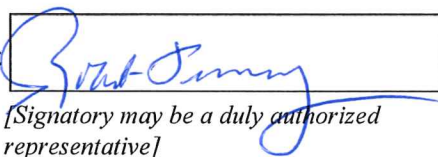 [Signatory may be a duly authorized
representative]